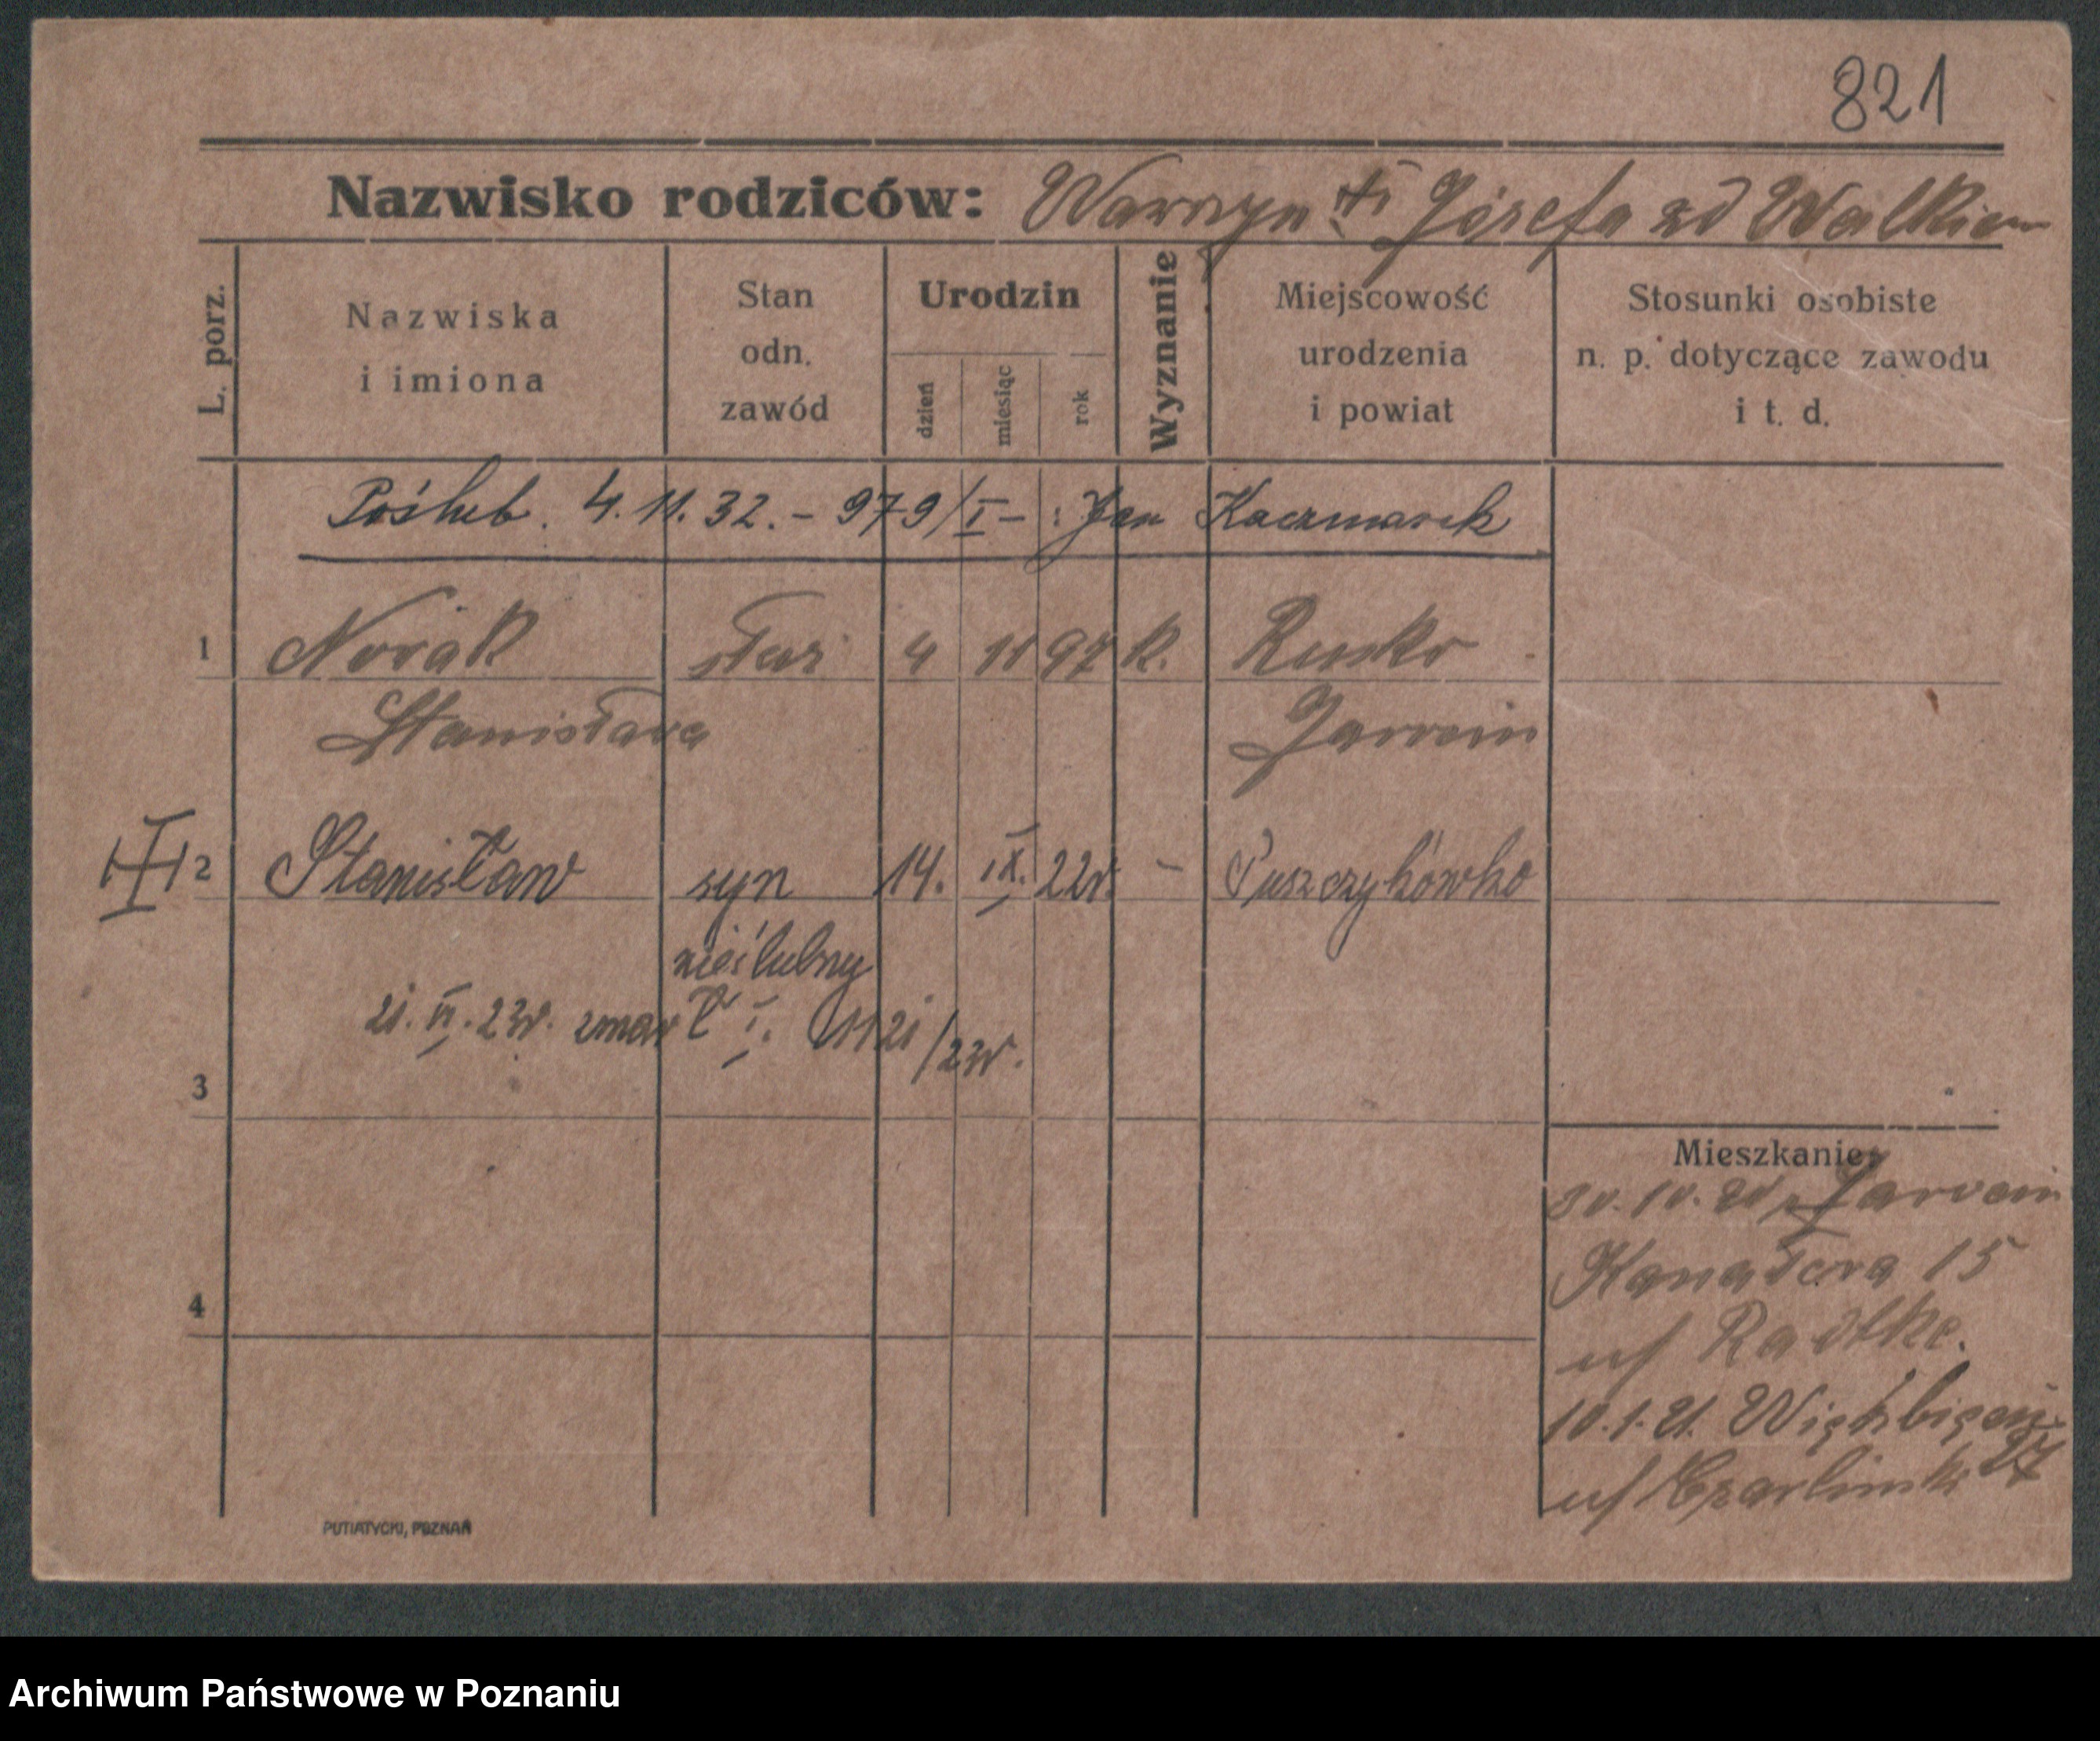 821
Nazwisko rodziców: Wawrzyn Józefa zd Walkiew
L. porz.
Nazwiska
i imiona
Stan
odn.
zawód
Urodzin
dzień
miesiąc
rok
Wyznanie
Miejscowość
urodzenia
i powiat
Stosunki osobiste
n. p. dotyczące zawodu
i t. d.
Poślub. 4.11.32. - 979/I - : Jan Kaczmarek
1 Novak służ 4 11 97 k. Rusko
Stanisława Jarocin
2 Stanisław syn 14. IX. 22r. - Puszczykówko
nieślubny
21. VI. 23r. zmarł I. 1121/23r.
3
4
Mieszkanie
Jarocin
Kanałowa 15
u/ Radtke.
10.1.21. Wierzbięcic
27
u/ Czarlinski
PUTIATYCKI, POZNAŃ
Archiwum Państwowe w Poznaniu